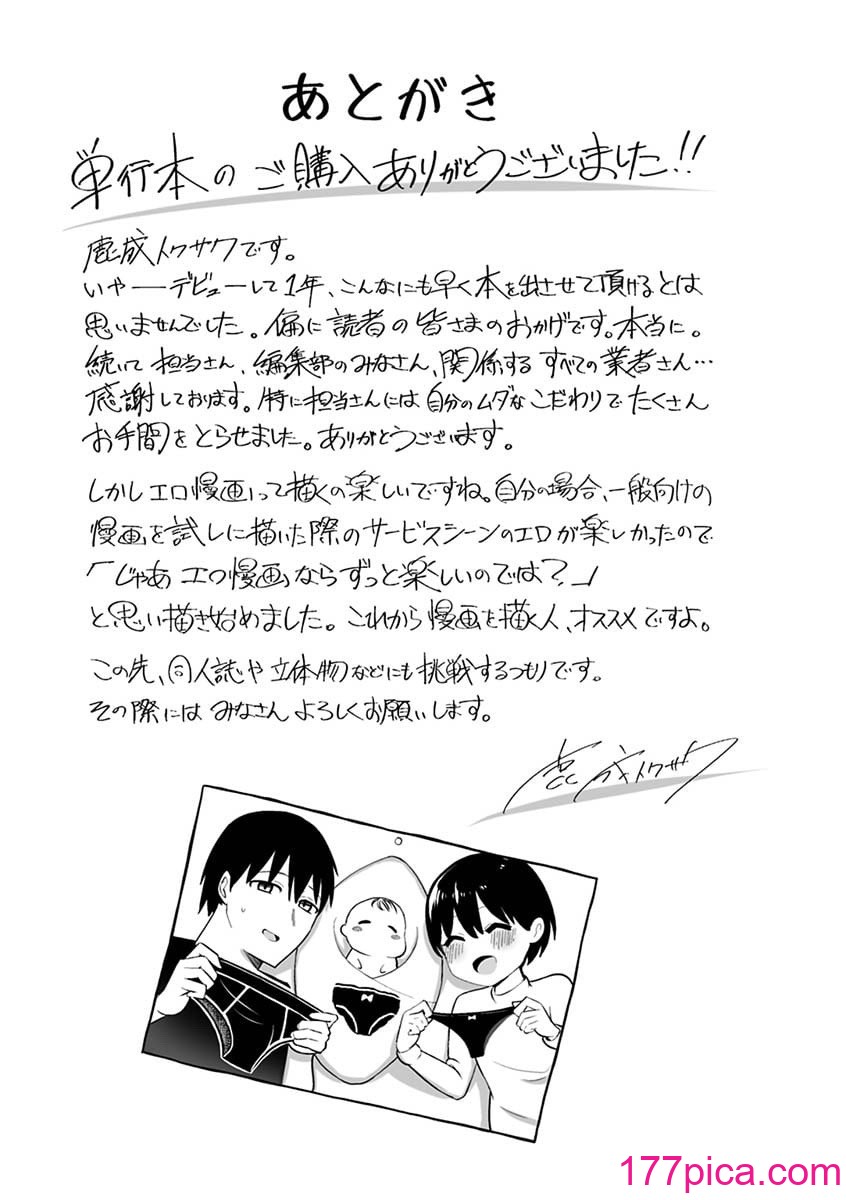 あとがき
単行本のご購入ありがとうございました!!
鹿成トクサクです。
いやーデビューして1年、こんなにも早く本を出させて頂けるとは
思いませんでした。偏に読者の皆さまのおかげです。本当に。
続いて担当さん、編集部のみなさん、関係するすべての業者さん…
感謝しております。特に担当さんには自分のムダなこだわりでたくさん
お手間をとらせました。ありがとうございます。
しかしエロ漫画って描くの楽しいですね。自分の場合、一般向けの
漫画を試しに描いた際のサービスシーンのエロが楽しかったので
「じゃあエロ漫画ならずっと楽しいのでは?」
と思い描き始めました。これから漫画を描く人、オススメですよ。
この先、同人誌や立体物などにも挑戦するつもりです。
その際にはみなさんよろしくお願いします。
鹿成トクサク
177pica.com